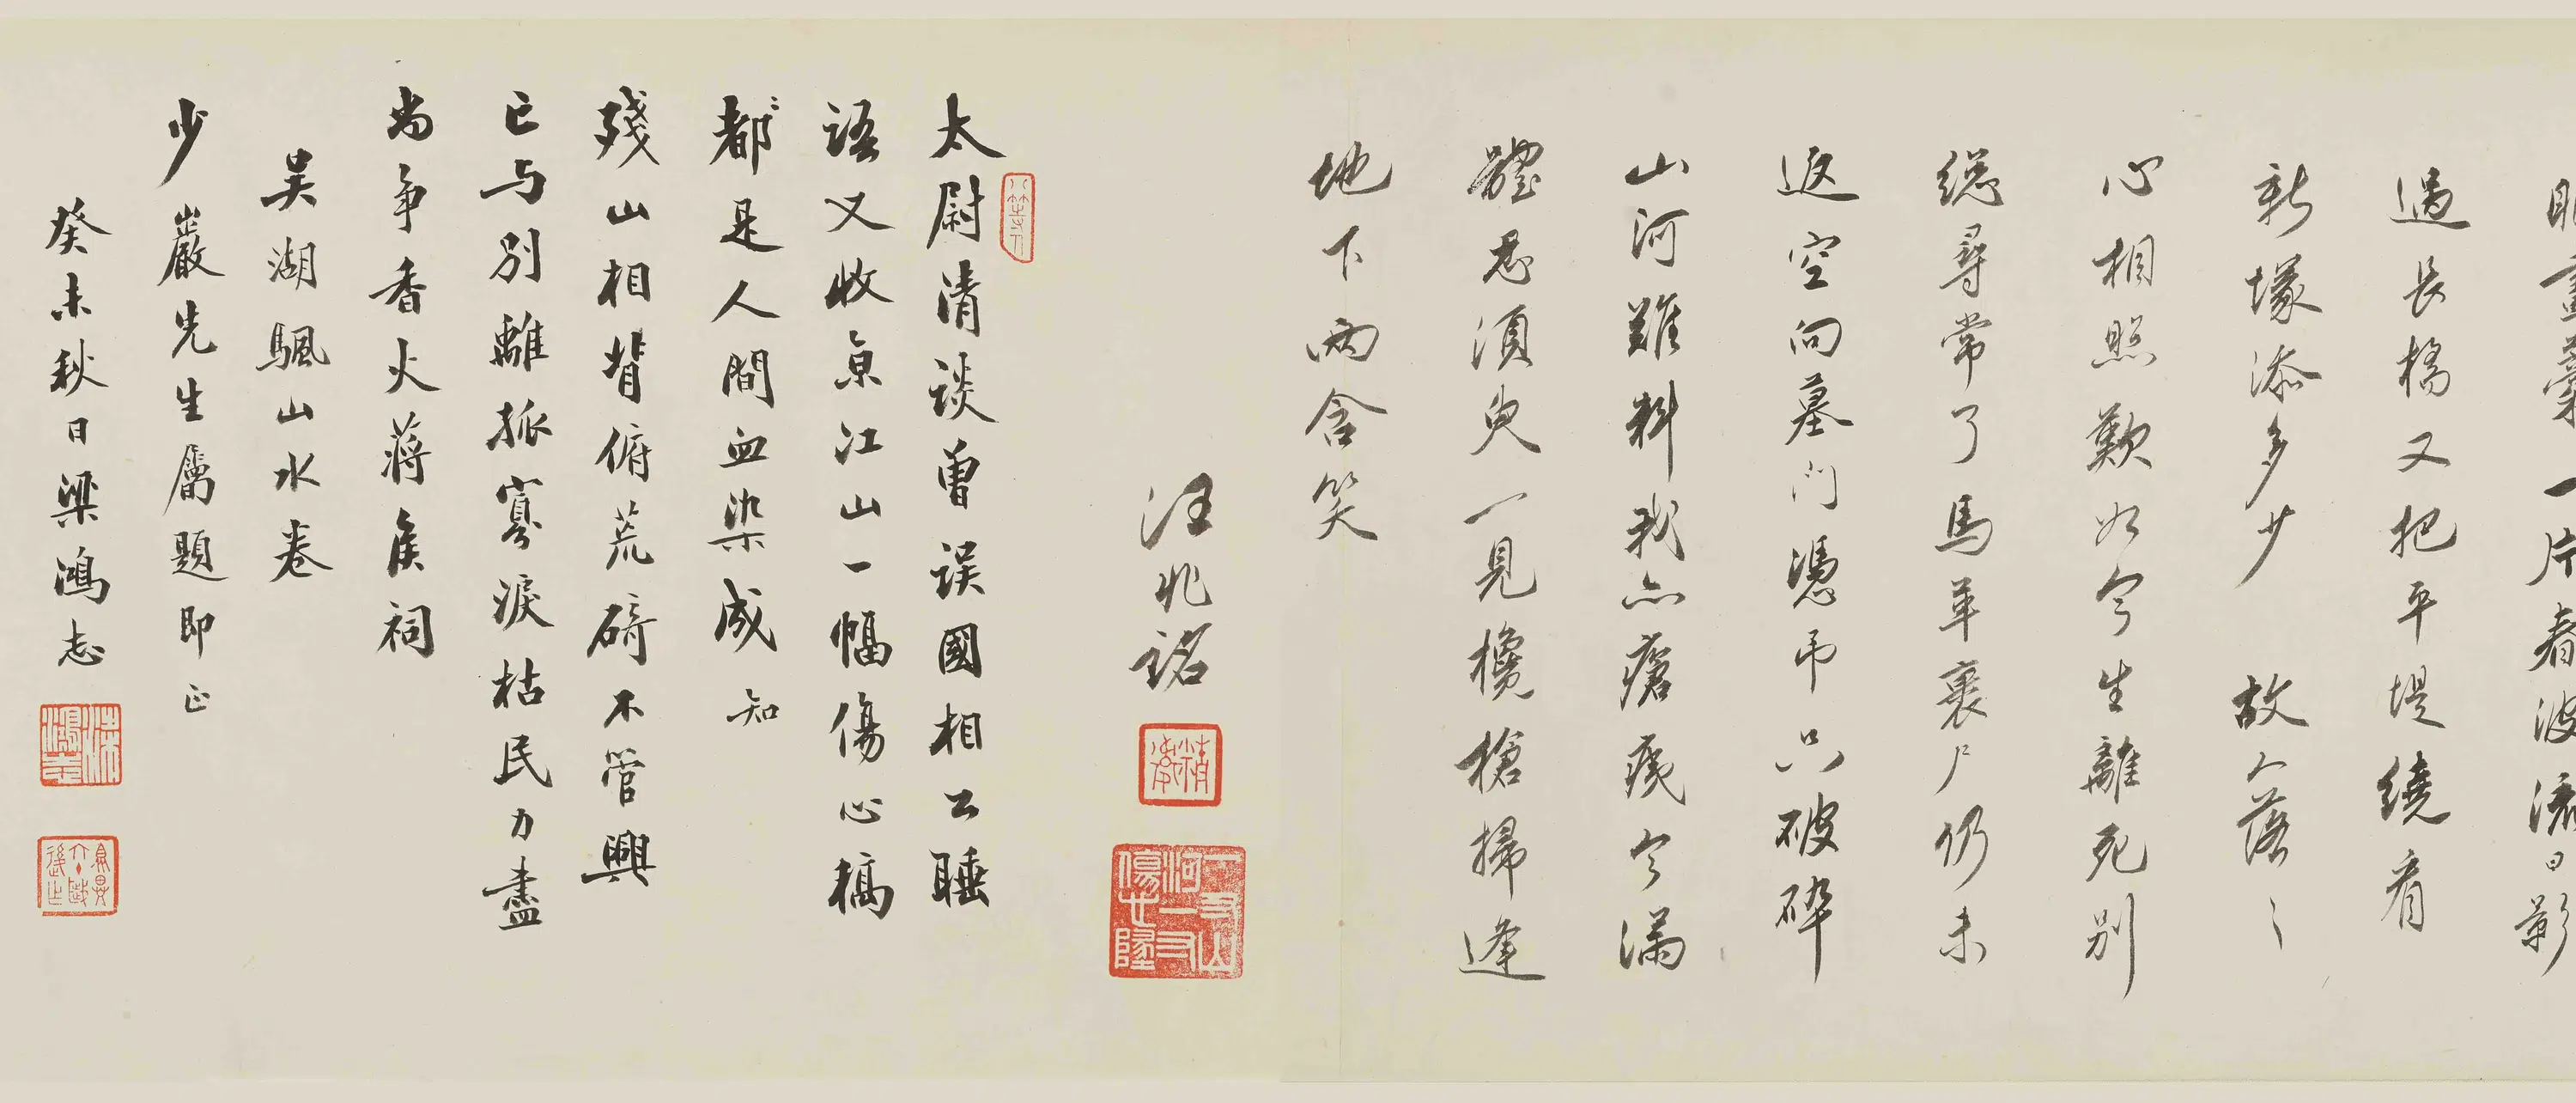 畫藁一片看波流日影
過長橋又把平堤繞看
新塚添多少　故人落〻
心相照歎如今生離死別
總尋常了馬革裹尸仍未
返空向墓門憑弔只破碎
山河難料我亦瘡痍今滿
體忍須臾一見欃槍掃逢
地下兩含笑
汪兆銘
太尉清談曾誤國相公睡
語又收京江山一幅傷心稿
都〻是人間血染成 知
殘山相背俯荒碕不管興
亡与別離孤寡淚枯民力盡
尚爭香火蔣侯祠
吳湖颿山水卷
少巖先生屬題即正
癸未秋日梁鴻志
梁鴻志